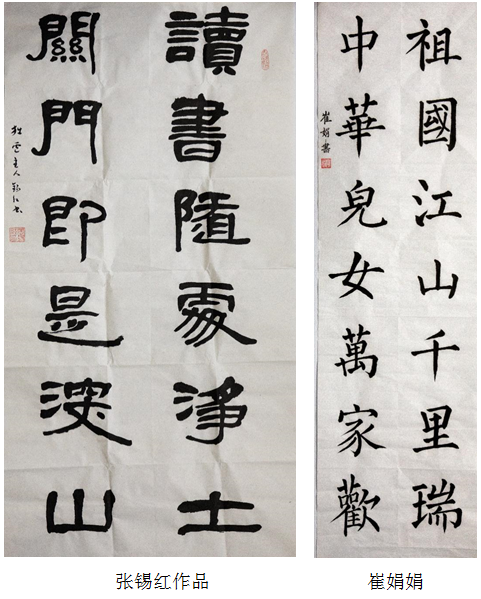 讀書隨處淨土
關門即是深山
主人錫红书
祖國江山千里瑞
中華兒女萬家歡
崔娟書
张锡红作品
崔娟娟